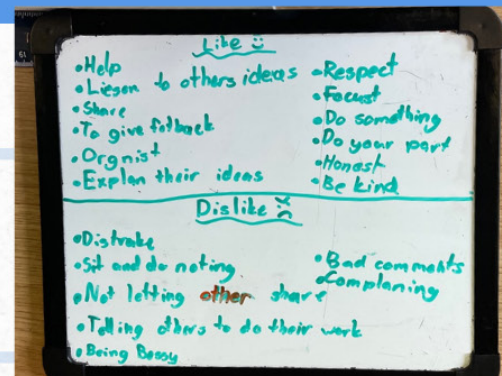 Like
•Help
•Lieson to others ideas
•Share
•To give fidback
•Orgnist
•Explan their ideas
•Respect
•Focust
•Do something
•Do your part
•Honest
•Be kind
Dislike
•Distrake
•Sit and do noting
•Not letting other share
•Telling others to do their work
•Being Bossy
•Bad comments
•Complaning